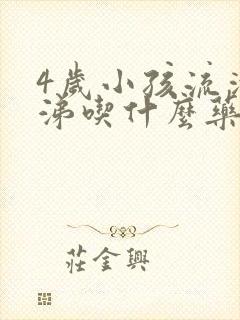 4歲小孩流清
涕喫什麼藥
莊金興